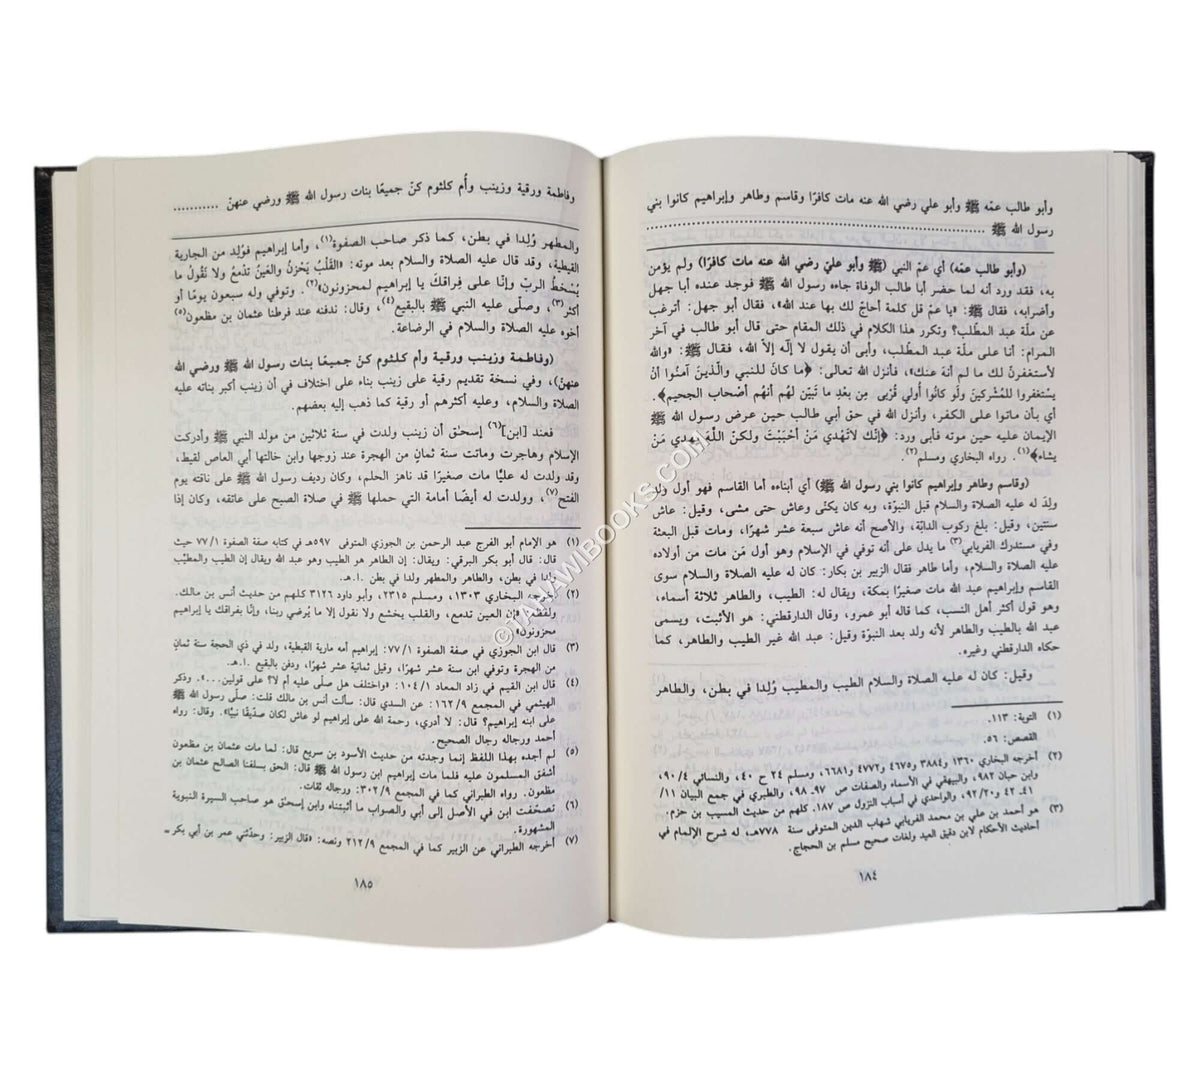 وأبو طالب عمّه ﷺ وأبو علي رضي الله عنه مات كافرًا وقاسم وطاهر وإبراهيم كانوا بني
رسول الله ﷺ ..........
(وأبو طالب عمّه) أي عمّ النبي (ﷺ وأبو عليّ رضي الله عنه مات كافرًا) ولم يؤمن
به، فقد ورد أنه لما حضر أبا طالب الوفاة جاءه رسول الله ﷺ فوجد عنده أبا جهل
وأضرابه، فقال ﷺ: «يا عمّ قل كلمة أحاجّ لك بها عند الله»، فقال أبو جهل: أترغب
عن ملّة عبد المطّلب؟ وتكرر هذا الكلام في ذلك المقام حتى قال أبو طالب في آخر
المرام: أنا على ملّة عبد المطّلب، وأبى أن يقول لا إلٰه إلاّ الله، فقال ﷺ: «والله
لأستغفرنّ لك ما لم أنه عنك»، فأنزل الله تعالى: ﴿ما كانَ للنبي والّذينَ آمنُوا أنْ
يستغفروا للمُشركينَ ولَو كانُوا أُولي قُربى مِن بعْدِ ما تَبيّن لهم أنهم أصْحاب الجحيم﴾.
أي بأن ماتوا على الكفر، وأنزل الله في حق أبي طالب حين عرض رسول الله ﷺ
الإيمان عليه حين موته فأبى ورد: ﴿إنّك لاتهْدي مَنْ أحْبَبْتَ ولكنّ اللّهَ يهدي مَنْ
يشاء﴾(١). رواه البخاري ومسلم(٢).
(وقاسم وطاهر وإبراهيم كانوا بني رسول الله ﷺ) أي أبناءه أما القاسم فهو أول ولد
ولِد له عليه الصلاة والسلام قبل النبوّة، وبه كان يكنّى وعاش حتى مشى، وقيل: عاش
سنتين، وقيل: بلغ ركوب الدابّة، والأصح أنه عاش سبعة عشر شهرًا، ومات قبل البعثة
وفي مستدرك الفريابي(٣) ما يدل على أنه توفي في الإسلام وهو أول من مات من أولاده
عليه الصلاة والسلام، وأما طاهر فقال الزبير بن بكار: كان له عليه الصلاة والسلام سوى
القاسم وإبراهيم عبد الله مات صغيرًا بمكة، ويقال له: الطيب، والطاهر ثلاثة أسماء،
وهو قول أكثر أهل النسب، كما قاله أبو عمرو، وقال الدارقطني: هو الأثبت، ويسمى
عبد الله بالطيب والطاهر لأنه ولد بعد النبوّة وقيل: عبد الله غير الطيب والطاهر، كما
حكاه الدارقطني وغيره.
وقيل: كان له عليه الصلاة والسلام الطيب والمطيب وُلِدا في بطن، والطاهر
(١) التوبة: ١١٣.
القصص: ٥٦.
(٢) أخرجه البخاري ١٣٦٠ و٣٨٨٤ و٤٦٧٥ و٤٧٧٢ و٦٦٨١، ومسلم ٢٤ ح ٤٠، والنسائي ٩٠/٤،
وابن حبان ٩٨٢، والبيهقي في الأسماء والصفات ص ٩٧ـ ٩٨، والطبري في جمع البيان ١١/
٤١ـ ٤٢ و٩٢/٢٠، والواحدي في أسباب النزول ص ١٨٧. كلهم من حديث المسيب بن حزم.
(٣) هو أحمد بن علي بن محمد الفريابي شهاب الدين المتوفى سنة ٧٧٨هـ، له شرح الإلمام في
أحاديث الأحكام لابن دقيق العيد ولغات صحيح مسلم بن الحجاج.
١٨٤
وفاطمة ورقية وزينب وأُم كلثوم كنّ جميعًا بنات رسول الله ﷺ ورضي عنهنّ ..........
والمطهر وُلِدا في بطن، كما ذكر صاحب الصفوة(١)، وأما إبراهيم فوُلِد من الجارية
القبطية، وقد قال عليه الصلاة والسلام بعد موته: «القَلْبُ يَحْزنُ والعَيْنُ تدْمَعُ ولا نَقُولُ ما
يُسْخطُ الربّ وإنّا على فِراقكَ يا إبراهيم لمحزونون»(٢). وتوفي وله سبعون يومًا أو
أكثر(٣)، وصلّى عليه النبي ﷺ بالبقيع(٤)، وقال: ندفنه عند فرطنا عثمان بن مظعون(٥)
أخوه عليه الصلاة والسلام في الرضاعة.
(وفاطمة وزينب ورقية وأم كلثوم كنّ جميعًا بنات رسول الله ﷺ ورضي الله
عنهنّ)، وفي نسخة تقديم رقية على زينب بناء على اختلاف في أن زينب أكبر بناته عليه
الصلاة والسلام، وعليه أكثرهم أو رقية كما ذهب إليه بعضهم.
فعند [ابن](٦) إسحٰق أن زينب ولدت في سنة ثلاثين من مولد النبي ﷺ وأدركت
الإسلام وهاجرت وماتت سنة ثمانٍ من الهجرة عند زوجها وابن خالتها أبي العاص لقيط،
وقد ولدت له عليًّا مات صغيرًا قد ناهز الحلم، وكان رديف رسول الله ﷺ على ناقته يوم
الفتح(٧)، وولدت له أيضًا أمامة التي حملها ﷺ في صلاة الصبح على عاتقه، وكان إذا
(١) هو الإمام أبو الفرج عبد الرحمن بن الجوزي المتوفى ٥٩٧هـ في كتابه صفة الصفوة ٧٧/١ حيث
قال: قال أبو بكر البرقي: ويقال: إن الطاهر هو الطيب وهو عبد الله ويقال إن الطيب والمطيَّب
ولدا في بطن، والطاهر والمطهر ولدا في بطن ا.هـ.
(٢) أخرجه البخاري ١٣٠٣، ومسلم ٢٣١٥، وأبو داود ٣١٢٦ كلهم من حديث أنس بن مالك.
ولفظه: فإن العين تدمع، والقلب يخشع ولا نقول إلا ما يُرضي ربنا، وإنّا بفراقك يا إبراهيم
محزونون»
(٣) قال ابن الجوزي في صفة الصفوة ٧٧/١: إبراهيم أمه مارية القبطية، ولد في ذي الحجة سنة ثمانٍ
من الهجرة وتوفي ابن ستة عشر شهرًا، وقيل ثمانية عشر شهرًا، ودفن بالبقيع ا.هـ.
(٤) قال ابن القيم في زاد المعاد ١٠٤/١: «واختلف هل صلّى عليه أم لا؟ على قولين...». وذكر
الهيثمي في المجمع ١٦٢/٩: عن السدي قال: سألت أنس بن مالك قلت: صلّى رسول الله ﷺ
على ابنه إبراهيم؟ قال: لا أدري، رحمة الله على إبراهيم لو عاش لكان صدّيقًا نبيًّا». وقال: رواه
أحمد ورجاله رجال الصحيح.
(٥) لم أجده بهذا اللفظ إنما وجدته من حديث الأسود بن سريع قال: لما مات عثمان بن مظعون
أشفق المسلمون عليه فلما مات إبراهيم ابن رسول الله ﷺ قال: الحق بسلفنا الصالح عثمان بن
مظعون. رواه الطبراني كما في المجمع ٣٠٢/٩: ورجاله ثقات.
(٦) تصحّفت ابن في الأصل إلى أبي والصواب ما أثبتناه وابن إسحٰق هو صاحب السيرة النبوية
المشهورة.
(٧) أخرجه الطبراني عن الزبير كما في المجمع ٢١٢/٩ ونصه: «قال الزبير: وحدّثني عمر بن أبي بكر =
١٨٥
©TANAWIBOOKS.COM